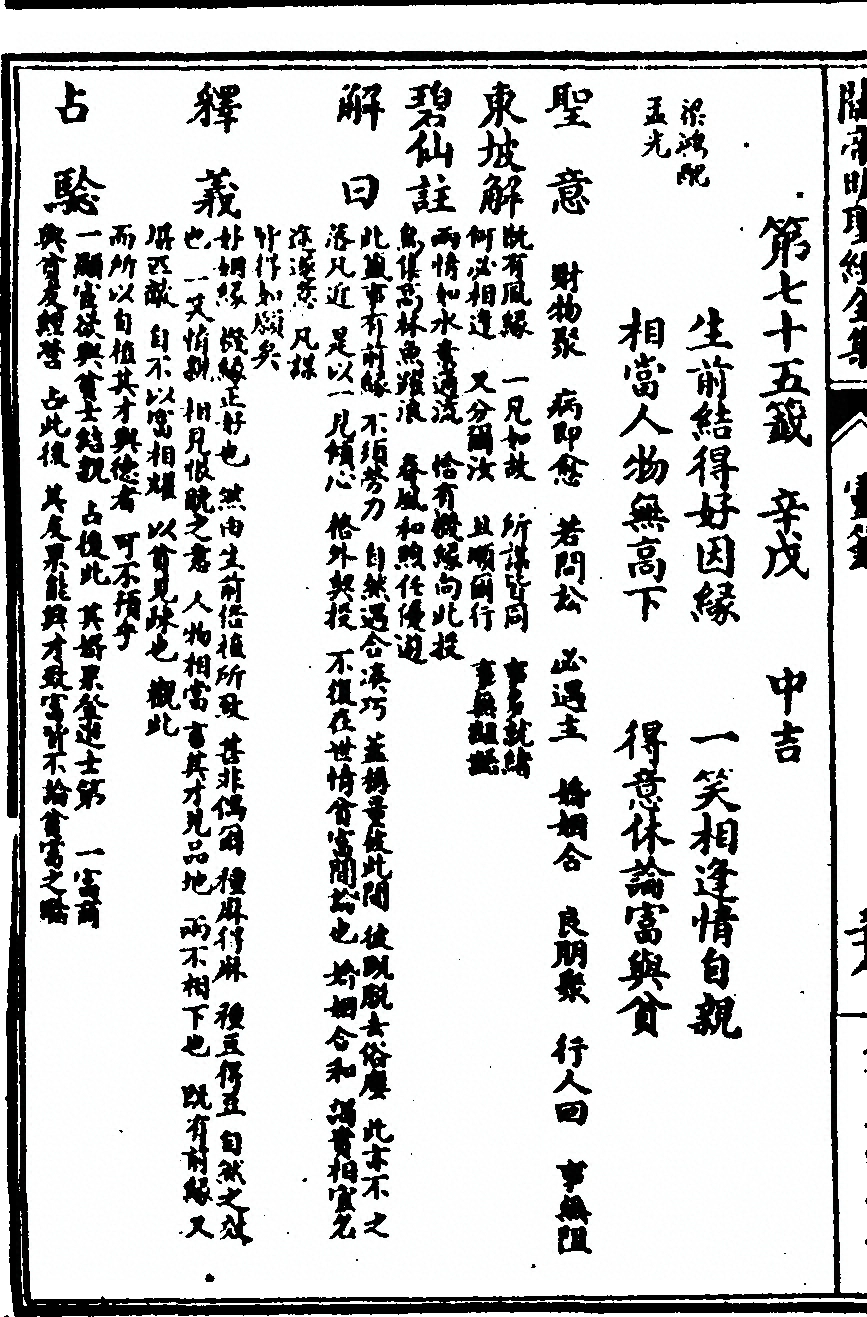 關帝明聖經全集
靈籤
第七十五籤 辛戊 中吉
梁鴻配
孟光
生前結得好因緣 一笑相逢情自親
相當人物無高下 得意休論富與貧
聖意 財物聚 病即愈 若問訟 必遇主 婚姻合 良朋聚 行人回 事無阻
東坡解 既有夙緣 一見如故 所謀皆同 事多就緒
何必相逢 又分爾汝 且順爾行 事無齟齬
碧仙註 兩情如水意過流 恰有機緣向此投
鳥集高林魚躍浪 春風和煦任優遊
解曰 此籤事有前緣 不須勞力 自然遇合湊巧 並稱量彼此間 彼既脫去俗塵 此亦不之
落凡近 是以一見傾心 格外契投 不復在世情貧富間論也 婚姻合和 謁貴相宜名
添遂意 凡謀
皆得如願矣
釋義 好姻緣 機緣正好也 然由生前培植所致 甚非偶爾 種麻得麻 種豆得豆 自然之效
也 一笑情親 相見恨晚之意 人物相當 言其才兒品地 兩不相下也 既有前緣 又
堪匹敵 自不以富相耀 以貧見疎也 觀此
而所以自植其才與德者 可不預乎
占驗 一顯宦欲與貧士結親 占後此 其婿果登進士第 一富商
與貧友經營 占此後 其友果能興才致富皆不論貧富之驗